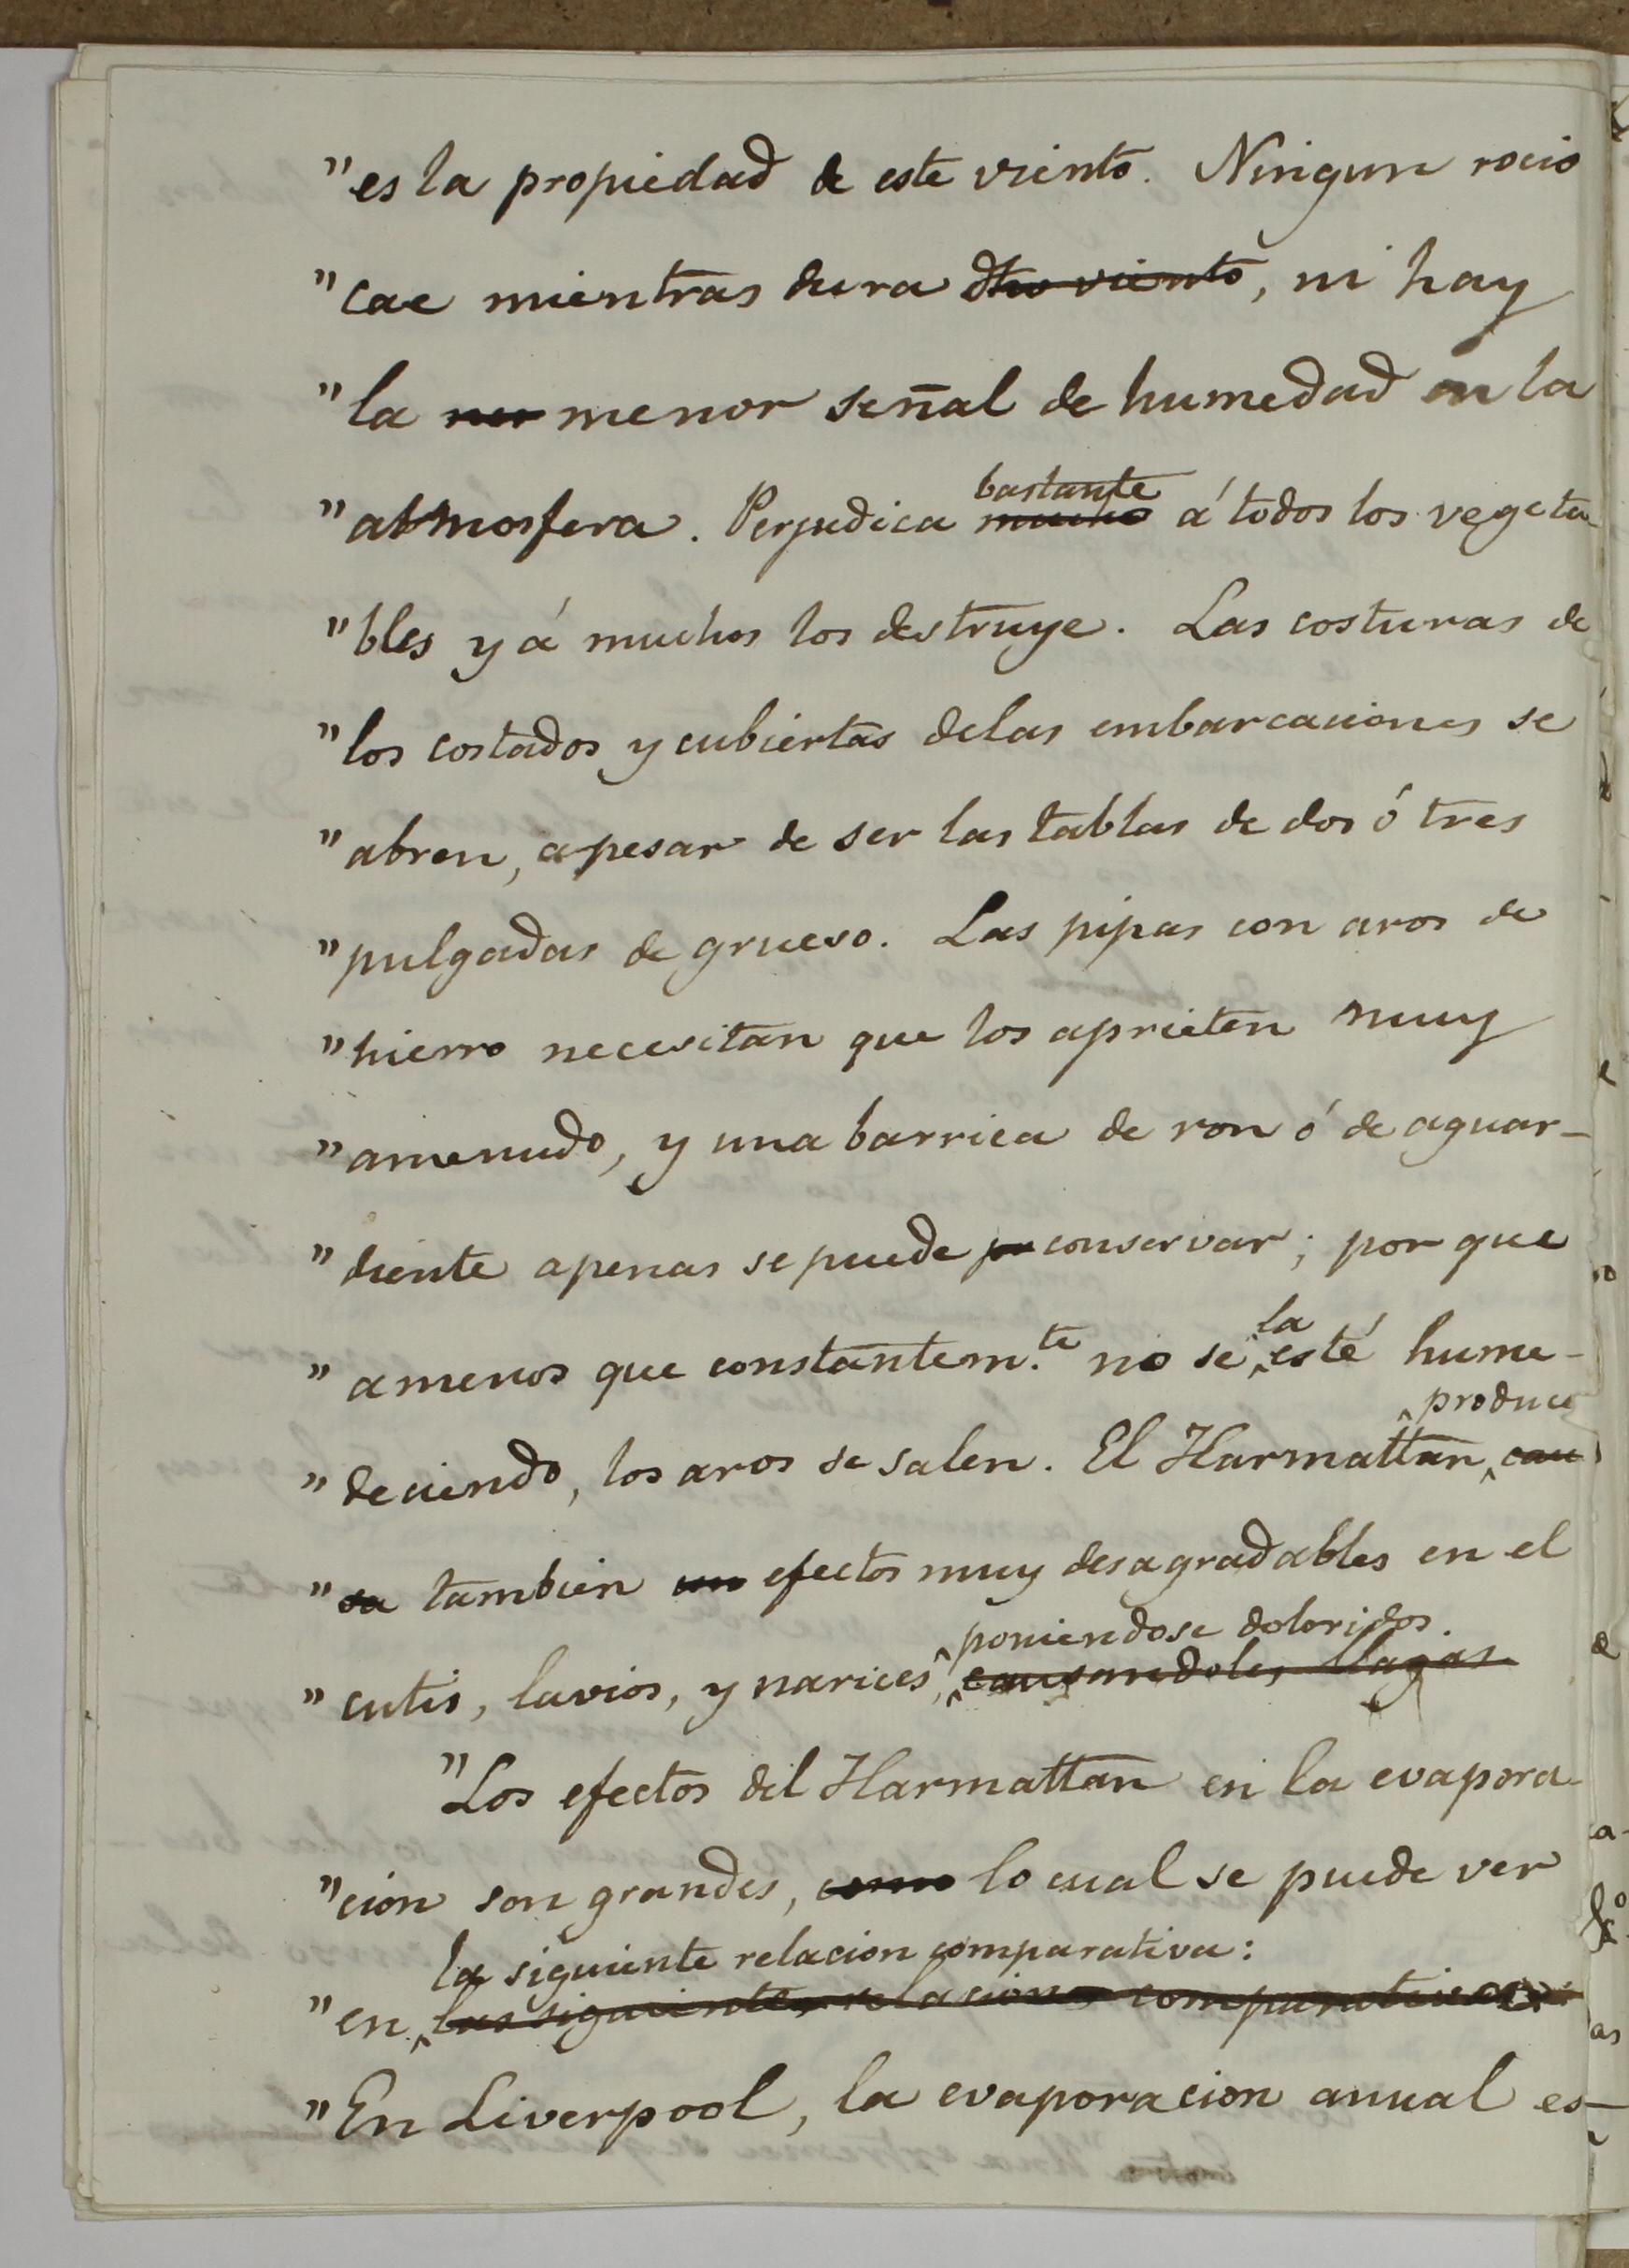 "es la propiedad de este viento. Ningun rocio
"cae mientras dura dho viento, ni hay
"la menor señal de humedad en la
bastante
"atmosfera. Perjudica mucho á todos los vegeta-
"bles y á muchos los destruye. Las costuras de
"los costados y cubiertas delas embarcaciones se
"abren, apesar de ser las tablas de dos ó tres
"pulgadas de grueso. Las pipas con aros de
"hierro necesitan que los aprieten muy
"amenudo, y una barrica de ron ó de aguar-
"diente apenas se puede conservar; por que
la
"amenos que constantem.te no se esté hume-
produce
"deciendo, los aros se salen. El Harmattan cau
"sa tambien un efectos muy desagradables en el
poniendose doloridos.
"cutis, lavios, y narices, causandoles llagas.
"Los efectos del Harmattan en la evapora-
"cion son grandes, como lo cual se puede ver
la siguiente relacion comparativa:
"en las siguientes relaciones comparativas:
"En Liverpool, la evaporacion anual es-